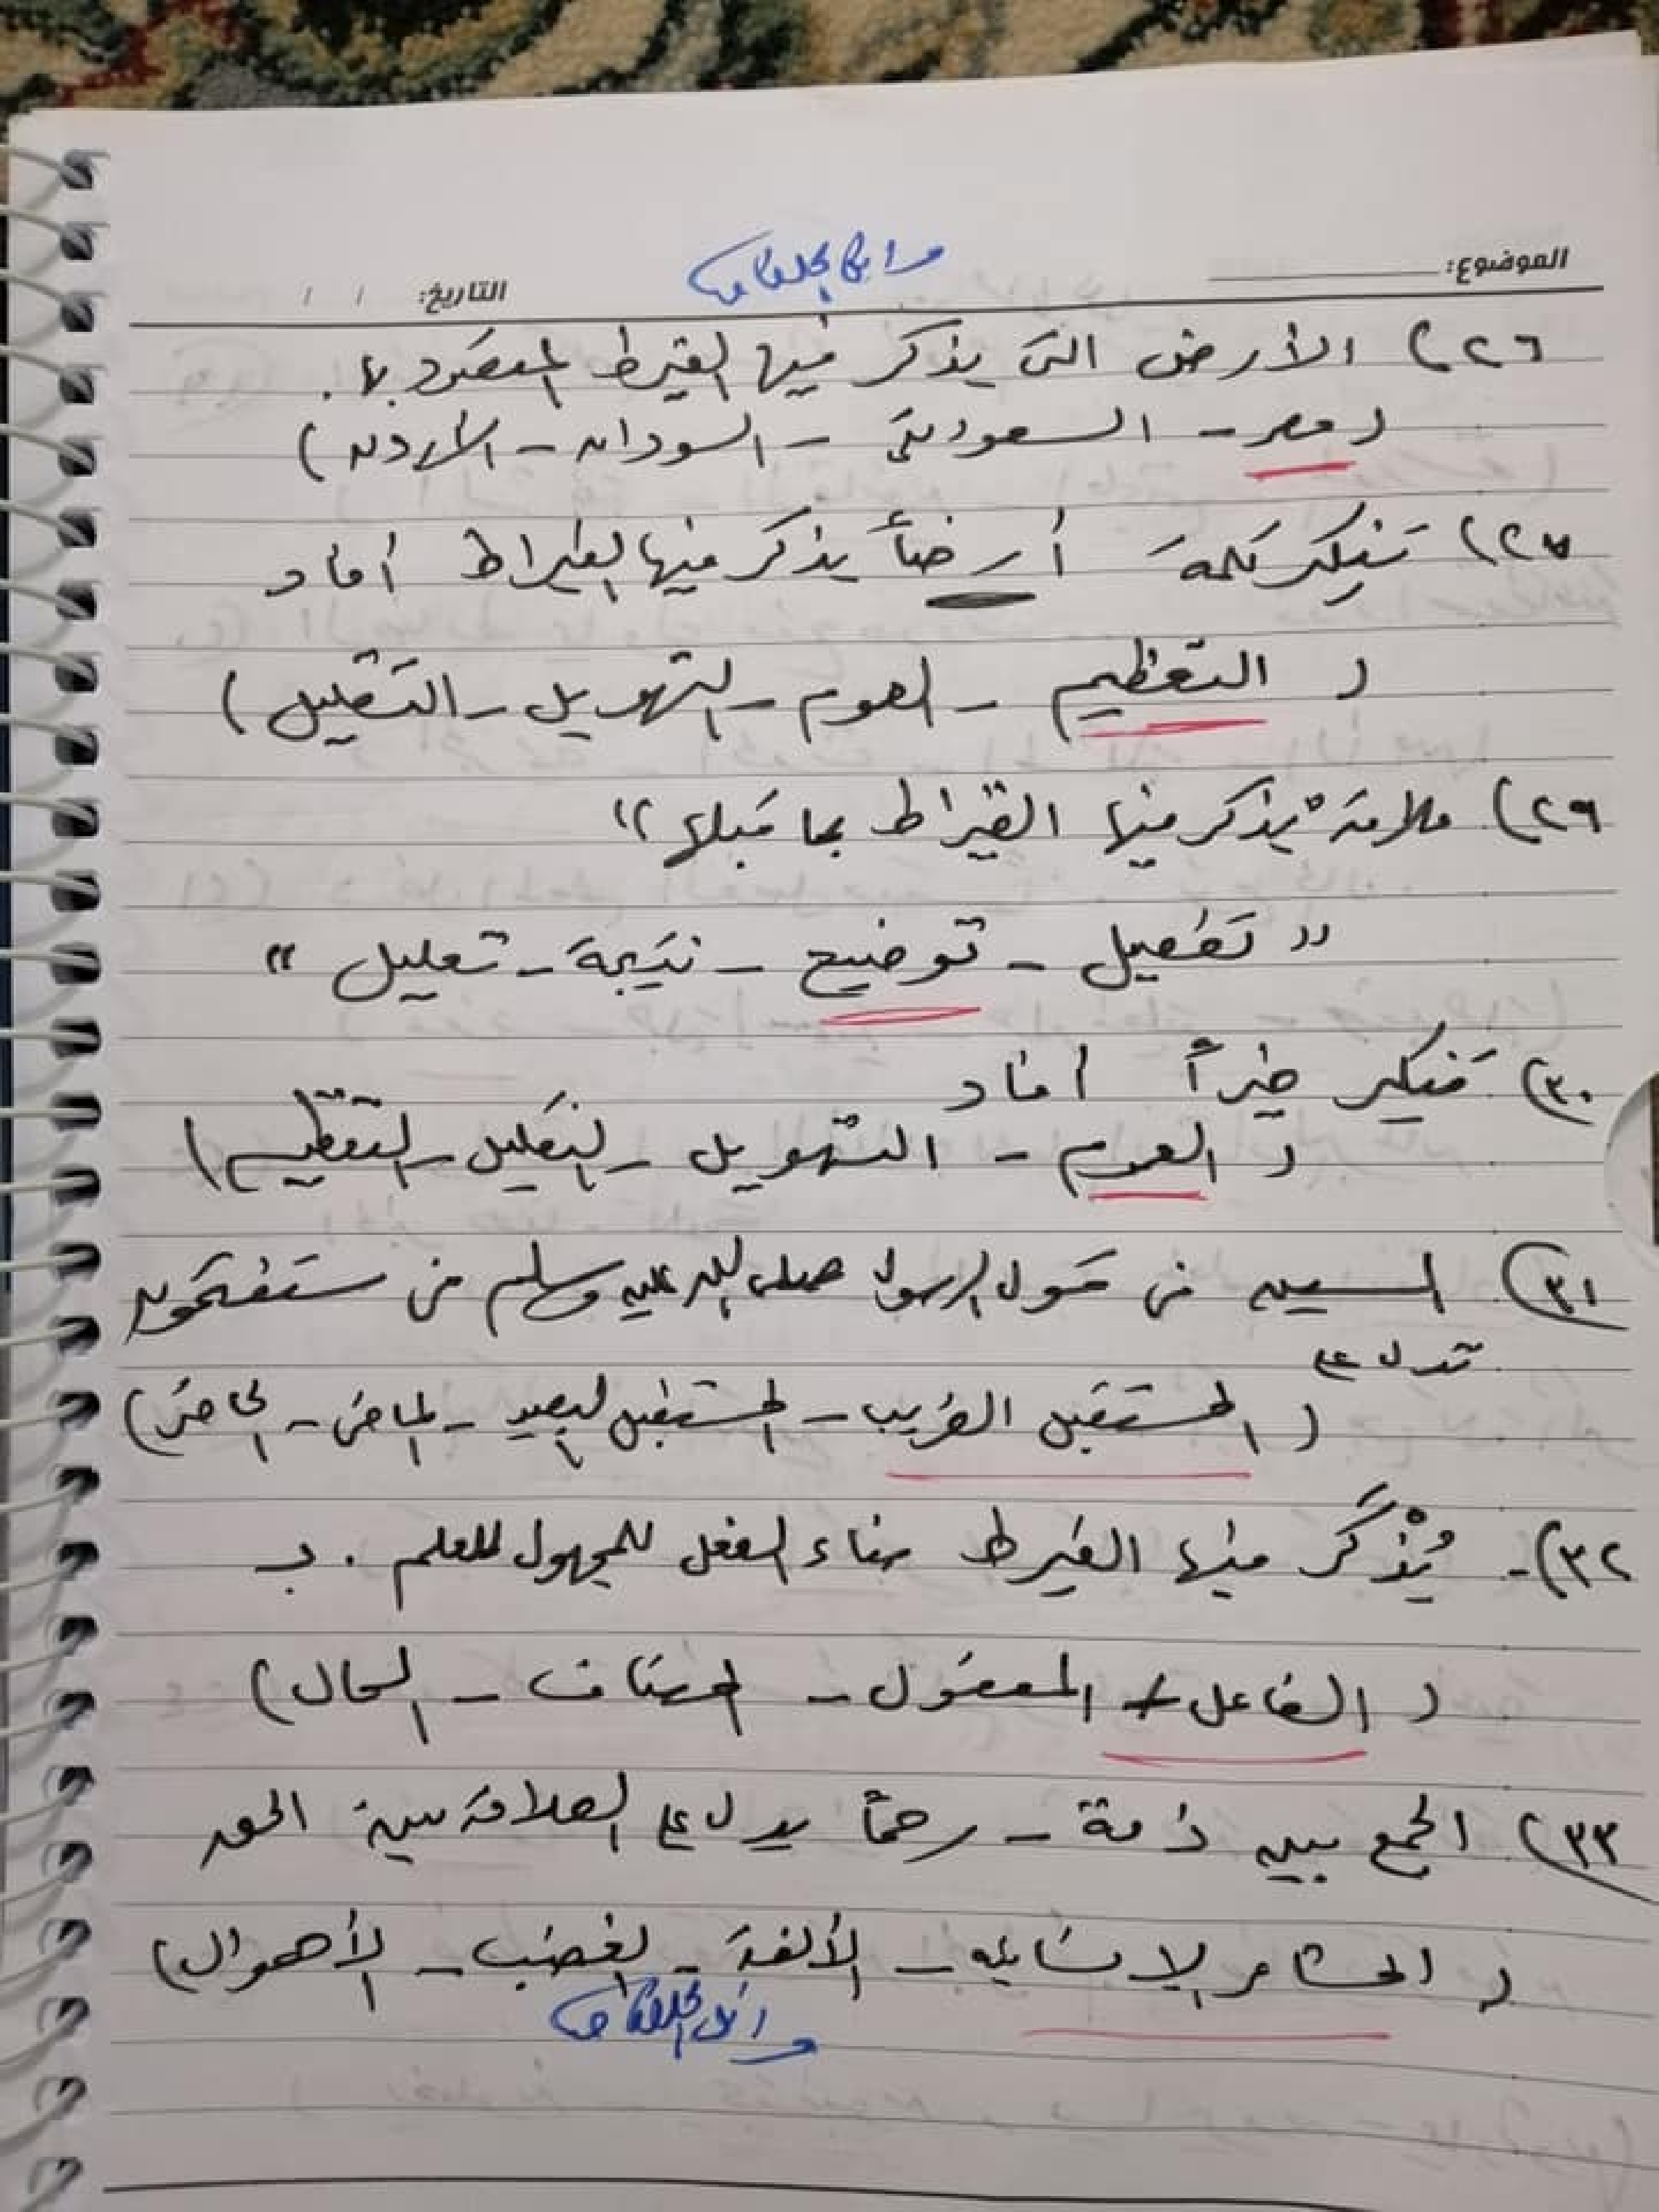 الموضوع:
التاريخ: / /
٢٦) الأرض التى يذكر فيها القيرط المقصود بها.
(مصر - السعودية - السودان - الأردن)
٢٨) تنكير كلمة أرضاً يذكر فيها القيراط أفاد
(التعظيم - العموم - التهويل - التقليل)
٢٩) علاقة "يذكر فيها القيراط بما قبلها"
"تفصيل - توضيح - نتيجة - تعليل"
٣٠) تنكير خيراً أفاد
(العموم - التهويل - التقليل - التعظيم)
٣١) السين فى قول الرسول صلى الله عليه وسلم فى ستفتحون
تدل على
(المستقبل القريب - المستقبل البعيد - الماضى - الحاضر)
٣٢)- يُذْكَر فيها القيرط بناء الفعل للمجهول للعلم بـ
(الفاعل - المفعول - المضاف - الحال)
٣٣) الجمع بين ذمة - رحماً يدل على العلاقة بين
(المشاعر الإنسانية - الألفة - الغضب - الأهوال)